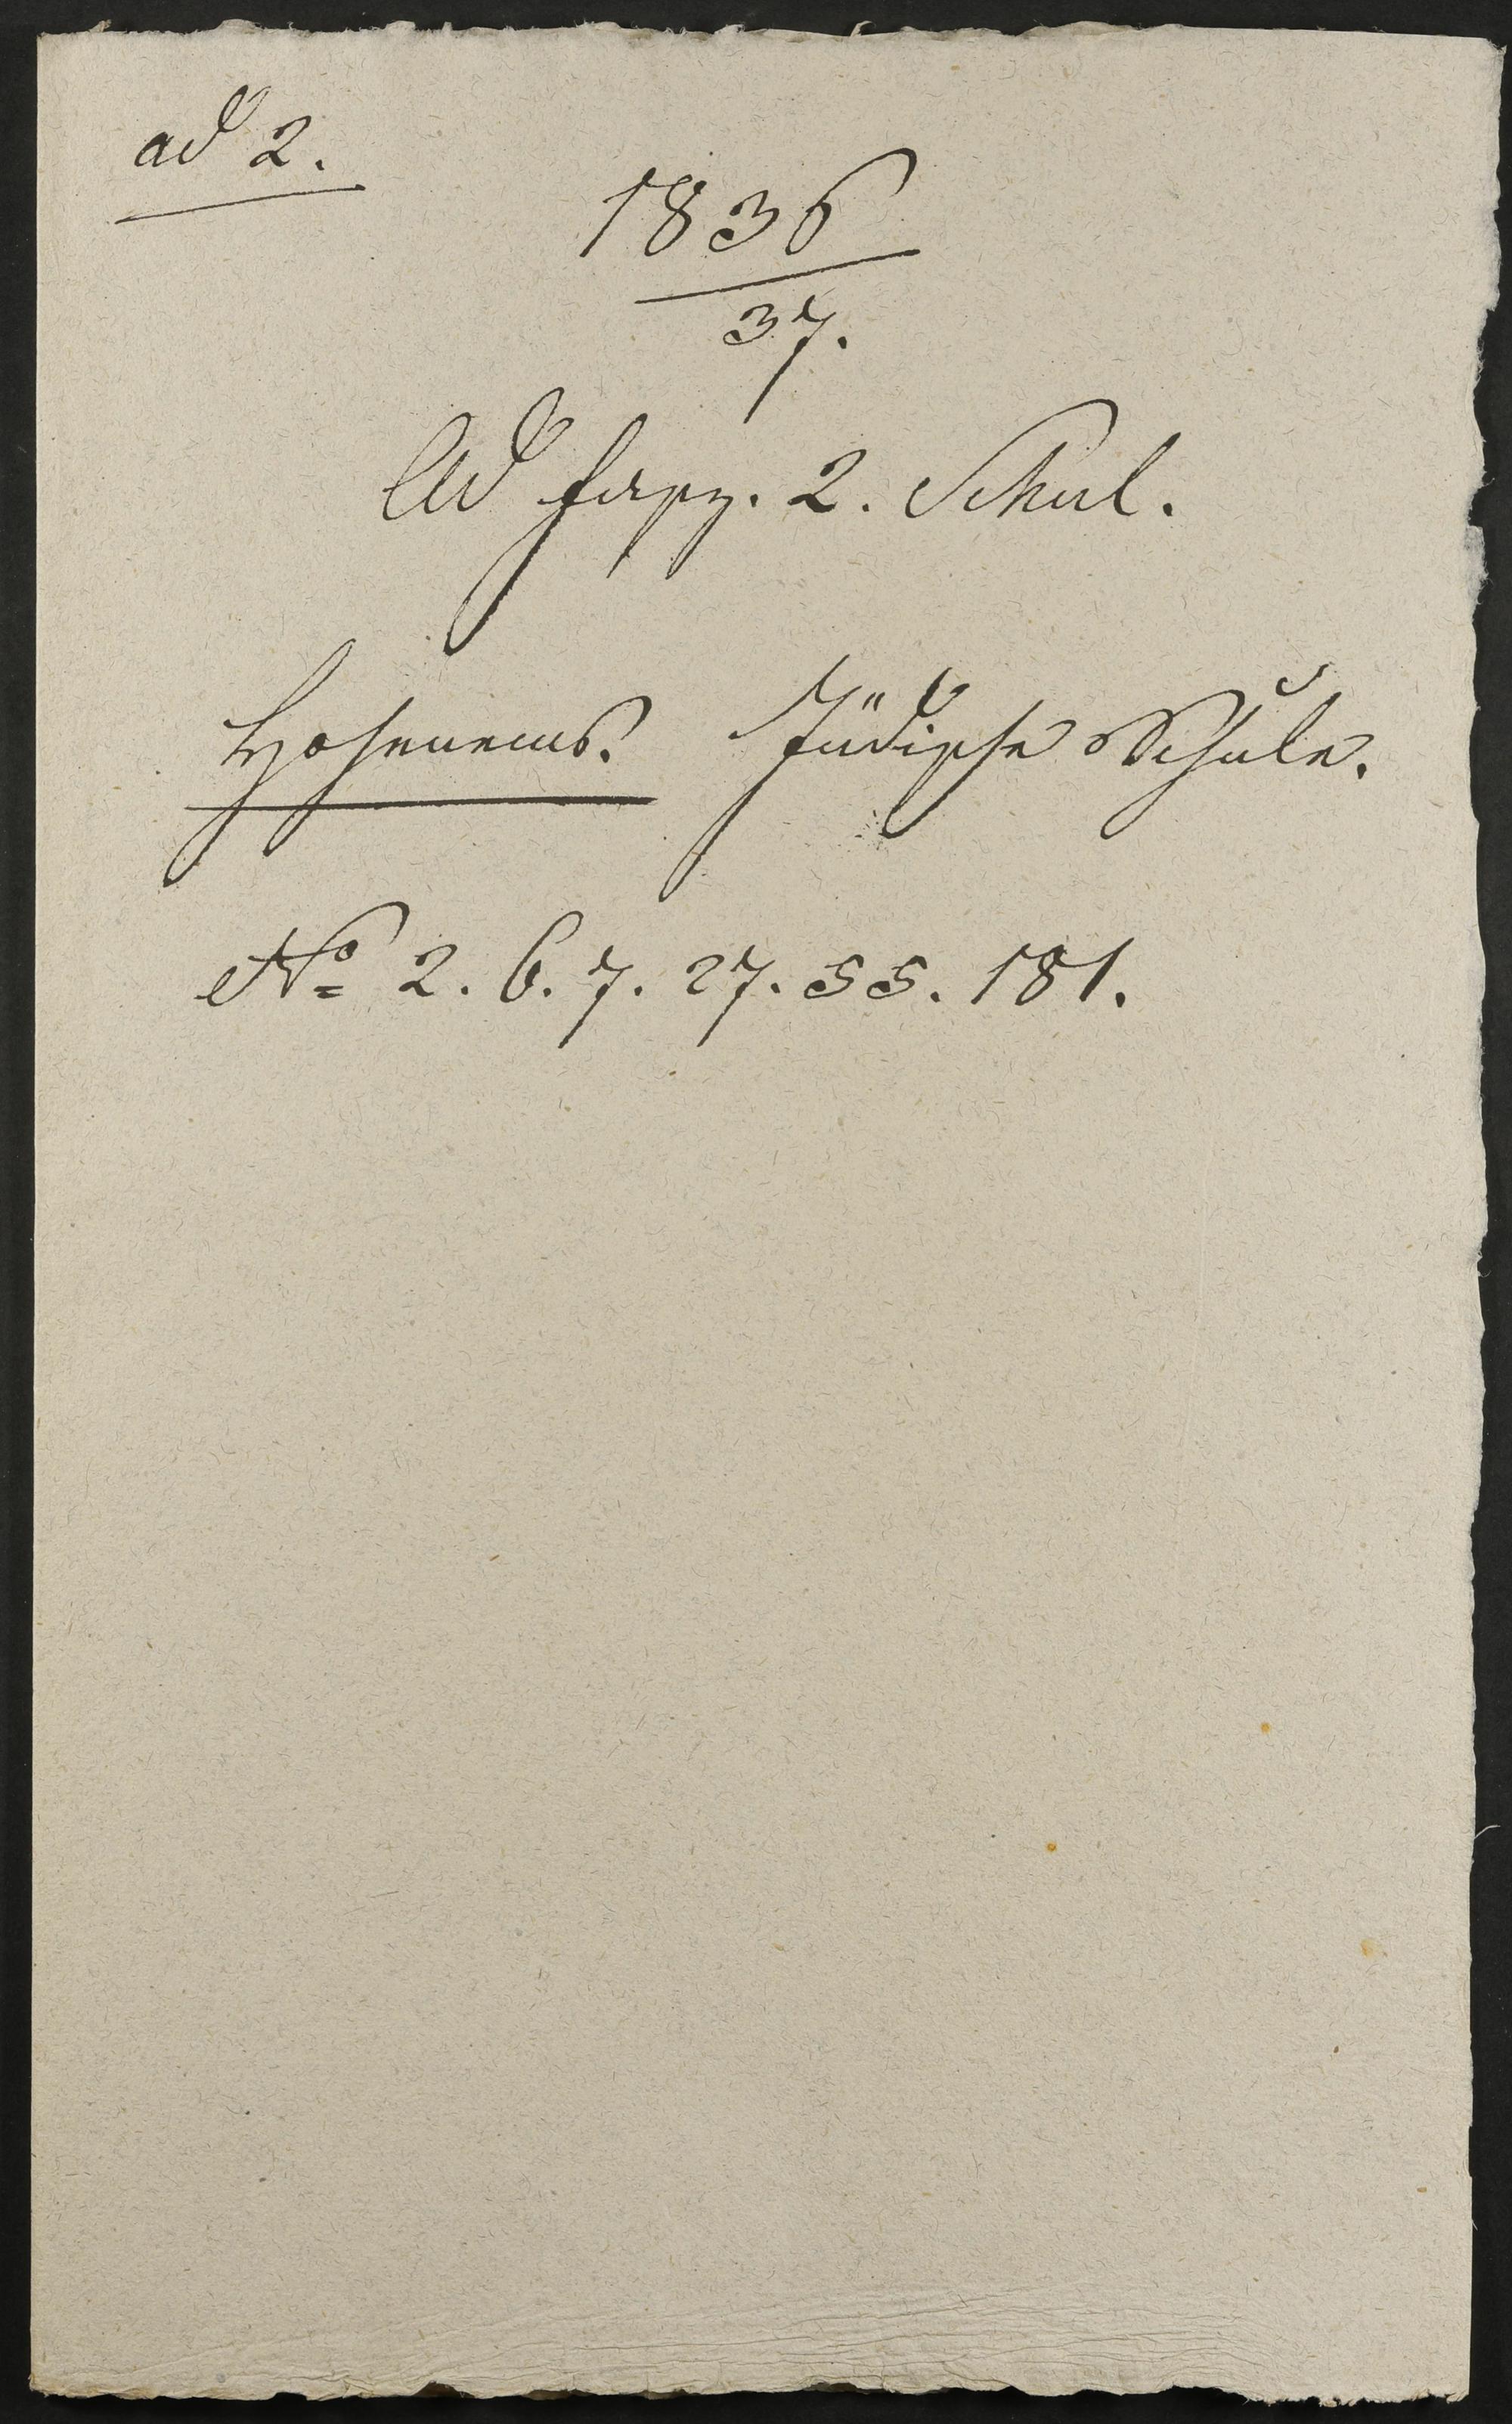 ad 2.
1836
37.
Ad fasz. 2. Schul.
Hohenems. Jüdische Schule.
No 2. 6. 7. 27. 55. 181.